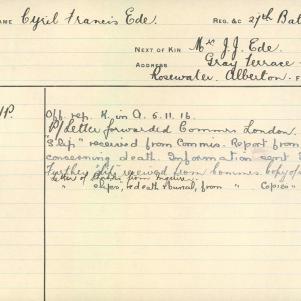 AME Cyril Francis Ede.
REG. &C 27th Bat
NEXT OF KIN Mr J. J. Ede.
ADDRESS Gray Terrace
Rosewater. Alberton.
Off. rep. K. in A. 5.11.16.
P/Letter forwarded Commrs London.
Slip" received from Commis. Report from
concerning death. Information sent
Further slip received from Commrs. Copy of
Letter of thanks from inquirer.
" slips, re death & burial, from " Copies "